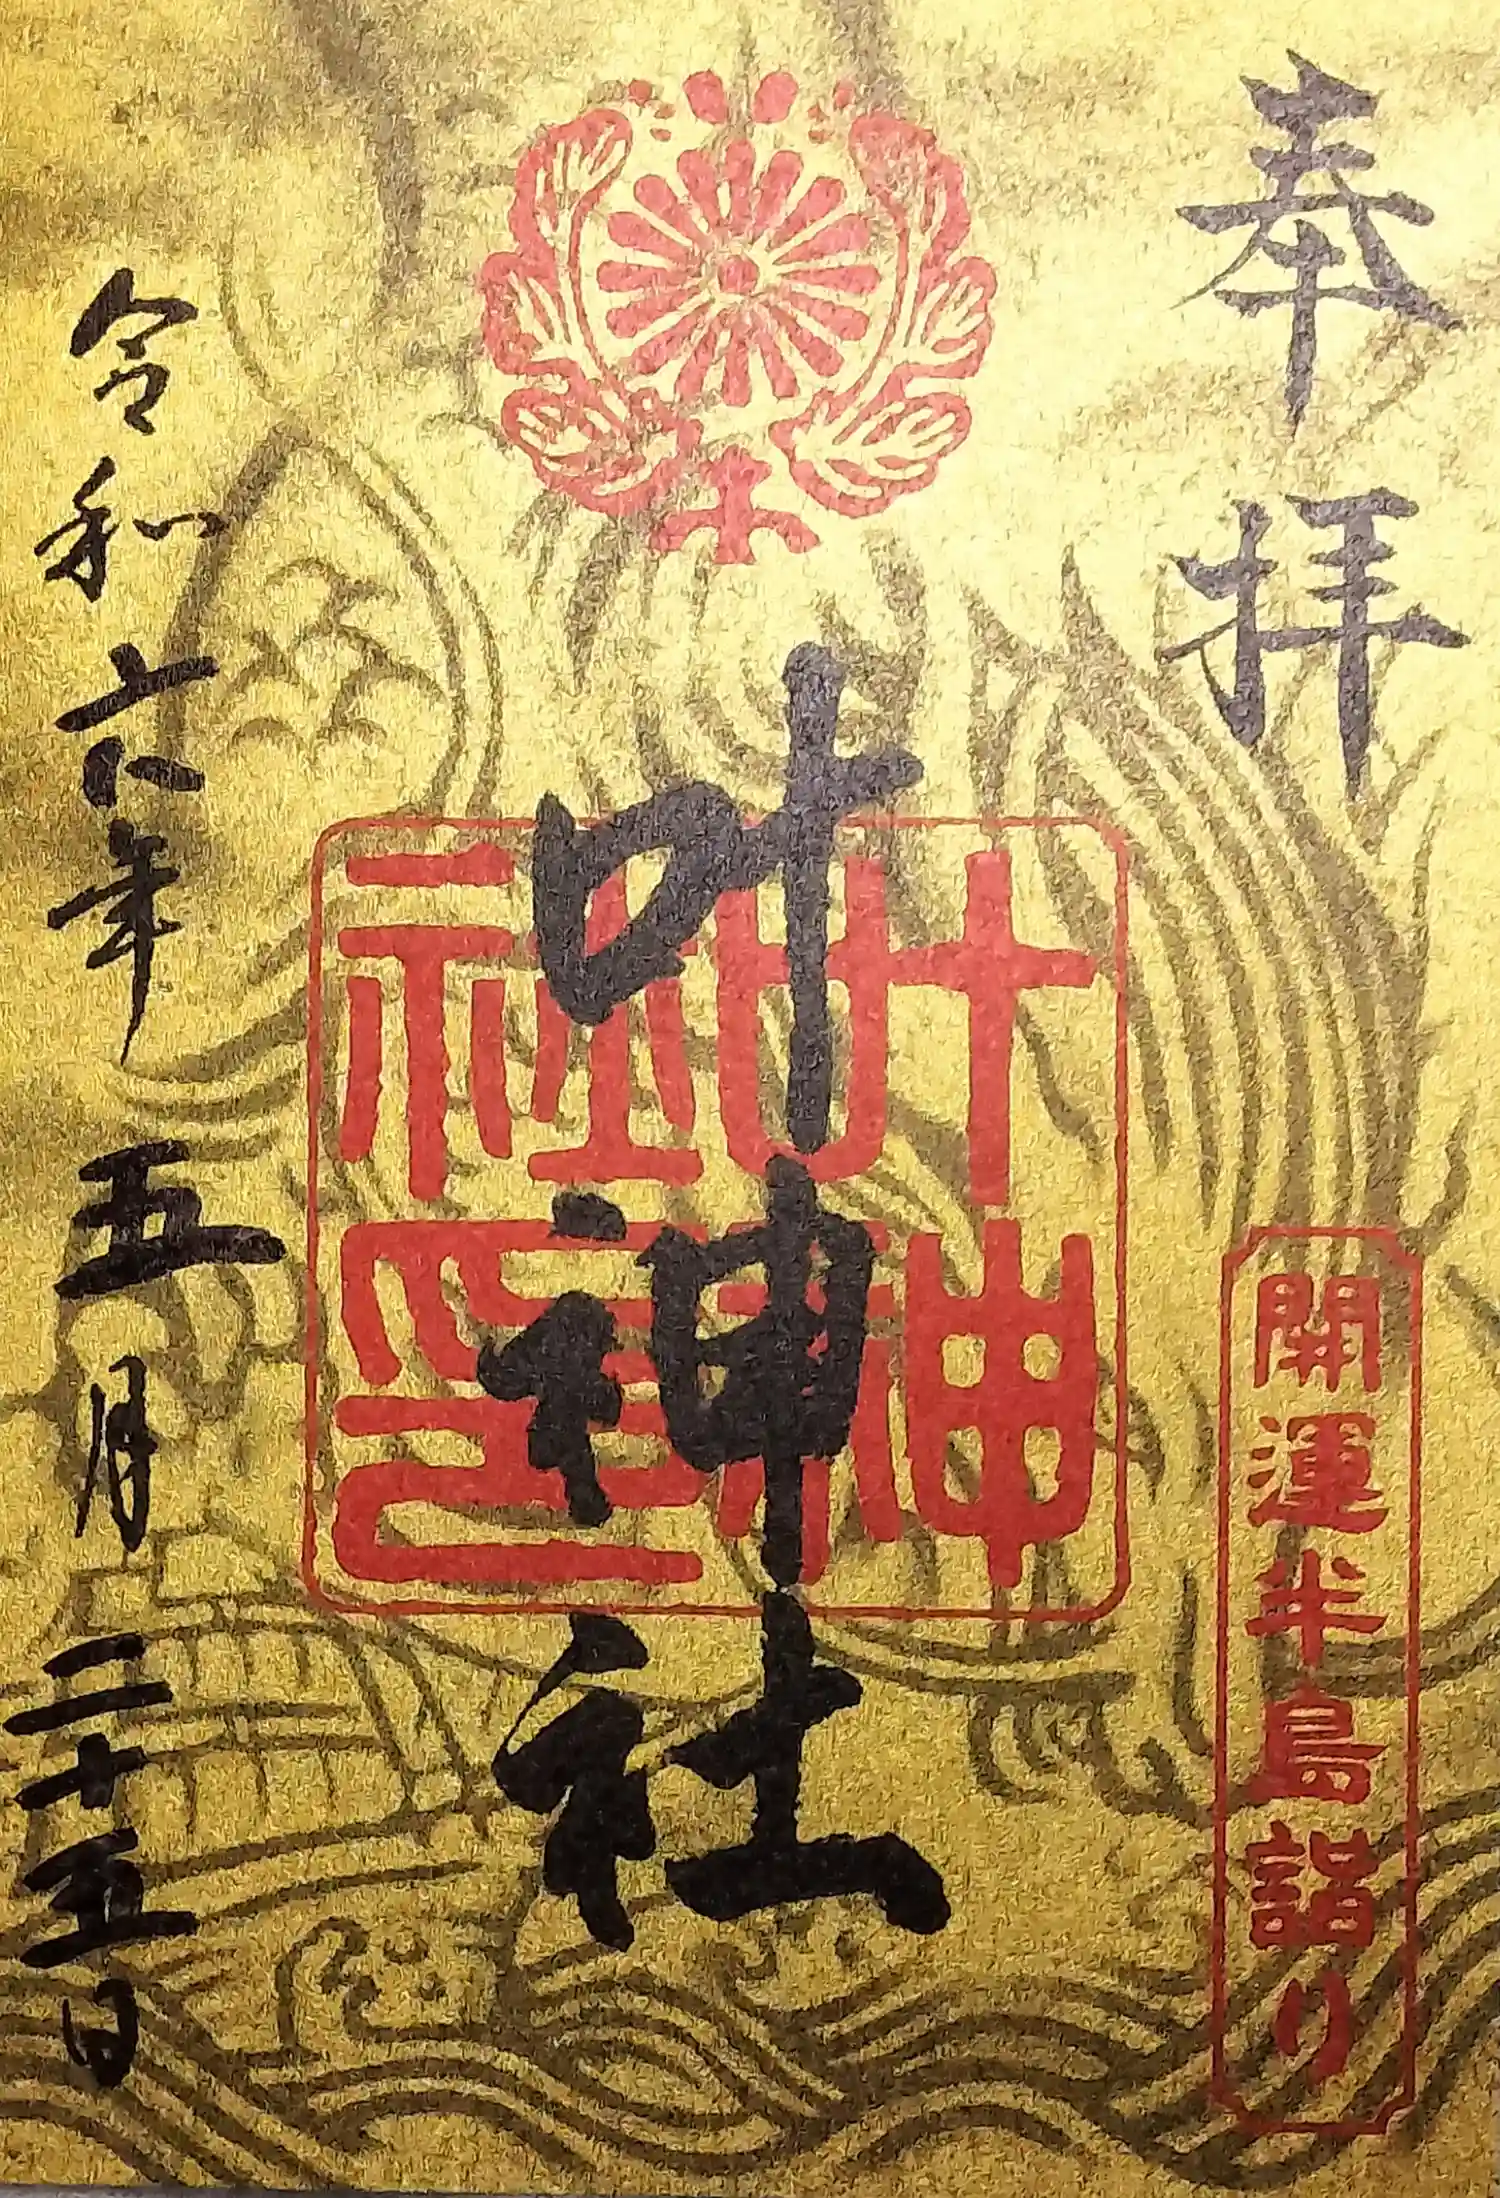 奉拝
開運半島詣り
叶神社
叶神社印
令和六年五月二十五日